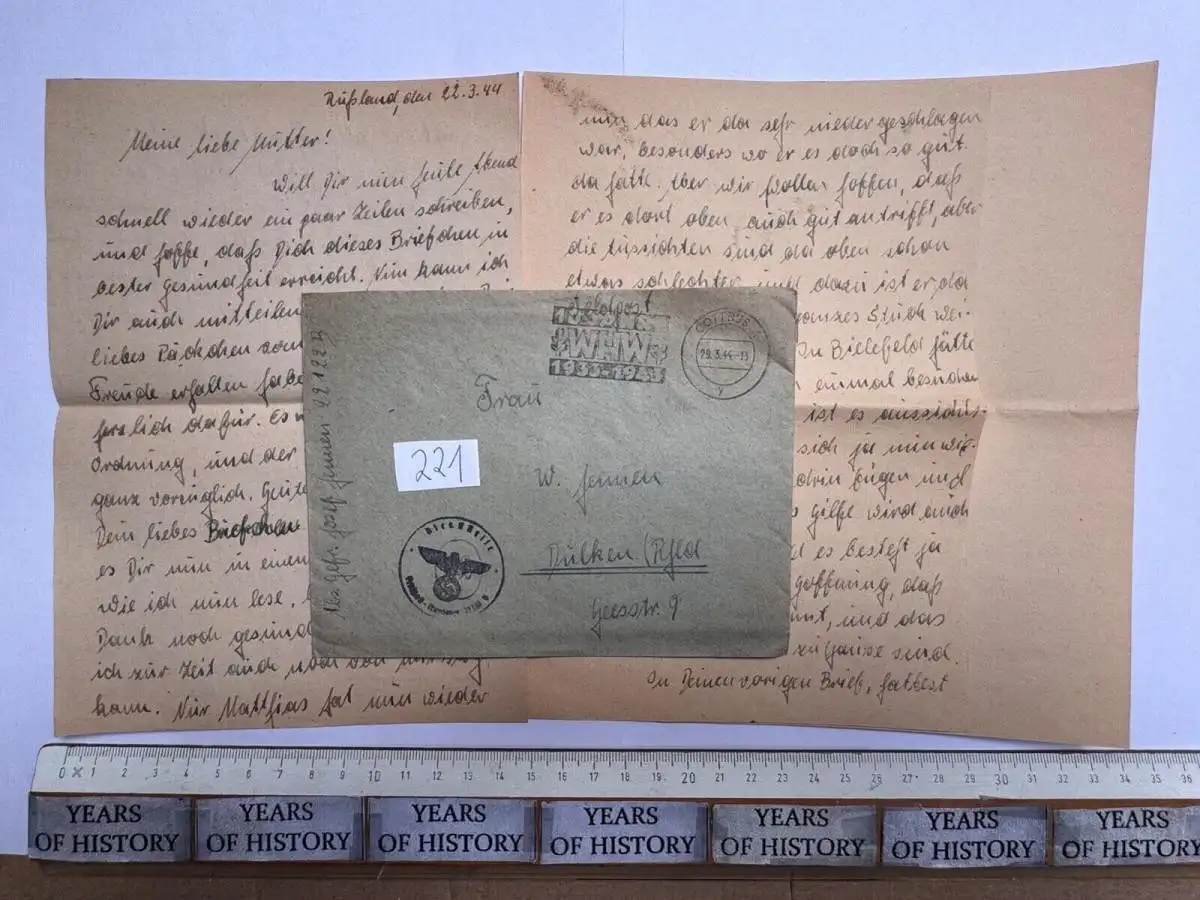 Rußland, den 22.3.44
Meine liebe Mutter!
Will Dir nun heute Abend
schnell wieder ein paar Zeilen schreiben,
und hoffe, daß Dich dieses Briefchen in
bester Gesundheit erreicht. Nun kann ich
Dir auch mitteilen
liebes Päckchen vom
Freude erhalten habe
herzlich dafür. Es
Ordnung, und der
ganz vorzüglich. Heute
Dein liebes Briefchen
es Dir nun in einem
wie ich nun lese,
Dank noch gesund
ich zur Zeit auch noch von mir
kann. Nur Matthias hat nun wieder
nun das er da sehr niedergeschlagen
war, besonders wo er es doch so gut
da hatte. Aber wir wollen hoffen, daß
er es dort oben auch gut antrifft, aber
die Aussichten sind da oben schon
etwas schlechter, und dazu ist er da
ganzes Stück wei-
In Bielefeld hätte
einmal besuchen
ist es aussichts-
sich ja nun wie-
drin Eugen und
Hilfe wird auch
es besteht ja
Hoffnung, daß
und das
zuhause sind.
In Deinem vorigen Brief, hattest
Feldpost
WHW
1933-1943
COTTBUS
29.3.44-13
y
Frau
W. Jennen
Dülken (Rhld
Geesstr. 9
221
Abs. Gefr. Josef Jennen 42122B
Dienststelle
0 1 2 3 4 5 6 7 8 9 10 11 12 13 14 15 16 17 18 19 20 21 22 23 24 25 26 27 28 29 30 31 32 33 34 35 36
YEARS OF HISTORY
YEARS OF HISTORY
YEARS OF HISTORY
YEARS OF HISTORY
YEARS OF HISTORY
YEARS OF HISTORY
YEARS OF HISTORY